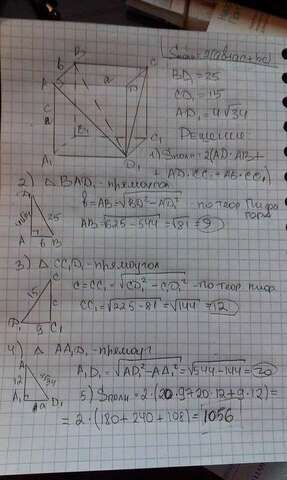 Sполн = 2(ab+ac+bc)
BD₁ = 25
CD₁ = 15
AD₁ = 4√34
Решение:
1) Sполн = 2(AD·AB+
+ AD·CC₁ + AB·CC₁)
B₁
B
C
b
a
A
D
c
B₁
C₁
A₁
D₁
2) △ BAD₁ - прямоуг
b = AB = √BD₁² - AD₁² - по теор Пифагора
AB = √625 - 544 = √81 = 9
D₁
4√34
25
A
b
B
3) △ CC₁D₁ - прямоуг
c = CC₁ = √CD₁² - C₁D₁² - по теор пиф.
CC₁ = √225 - 81 = √144 = 12
C
15
c
D₁
9
C₁
4) △ AA₁D₁ - прямоуг
A₁D₁ = √AD₁² - AA₁² = √544 - 144 = 20
A
12
4√34
A₁
a
D₁
5) Sполн = 2·(20·9+20·12+9·12) =
= 2·(180+240+108) = 1056